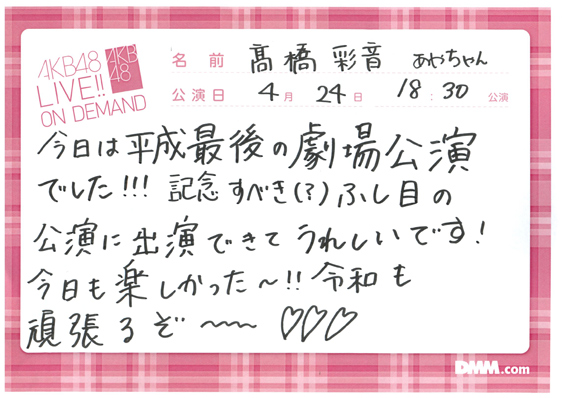 AKB48
LIVE!!
ON DEMAND
AKB
48
名前 髙橋彩音 あやちゃん
公演日 4月24日 18:30 公演
今日は平成最後の劇場公演
でした!!! 記念すべき(?)ふし目の
公演に出演できてうれしいです!
今日も楽しかった〜!! 令和も
頑張るぞ〜〜 ♡♡♡
DMM.com